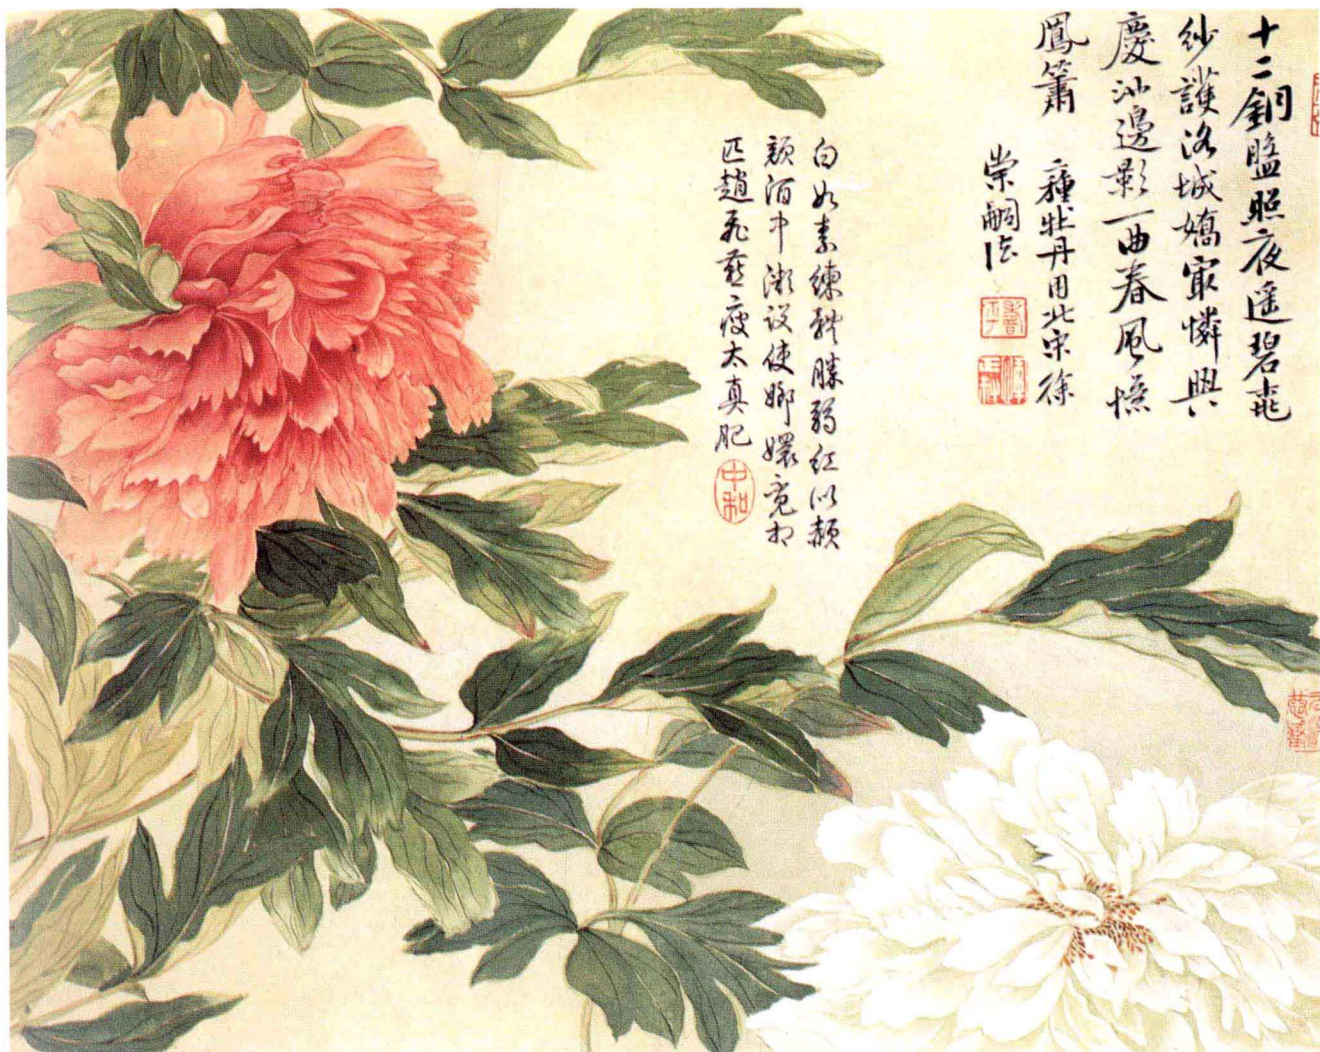 十二銅盤照夜遙碧桃
紗護洛城嬌最憐興
慶池邊影一曲春風憶
鳳簫 牡丹用北宋徐
崇嗣法
白如素練勝弱紅似頳
顏酒半潮設使嫏嬛竟相
匹趙飛燕瘦太真肥
中和